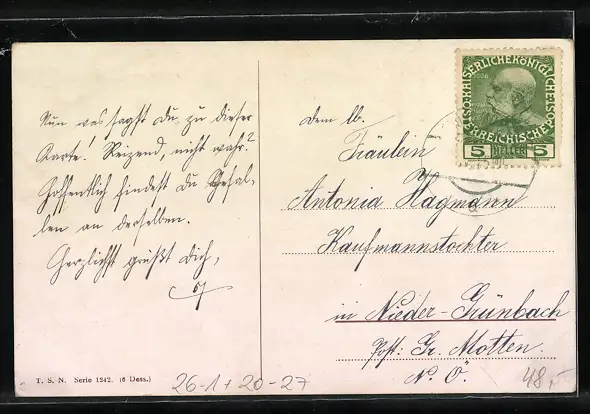 Nun was sagst du zu dieser
Karte! Reizend, nicht wahr?
Hoffentlich findest du Gefal-
len an derselben.
Herzlichst grüßt dich,
T. S. N. Serie 1242. (6 Dess.)
26-1+20-27
KAISERLICHEKÖNIGLICHE
ÖSTERREICHISCHE
5 HELLER 5
dem lb.
Fräulein
Antonia Hagmann
Kaufmannstochter
in Nieder-Grünbach
Post: Gr. Motten.
N. Ö.
48,-